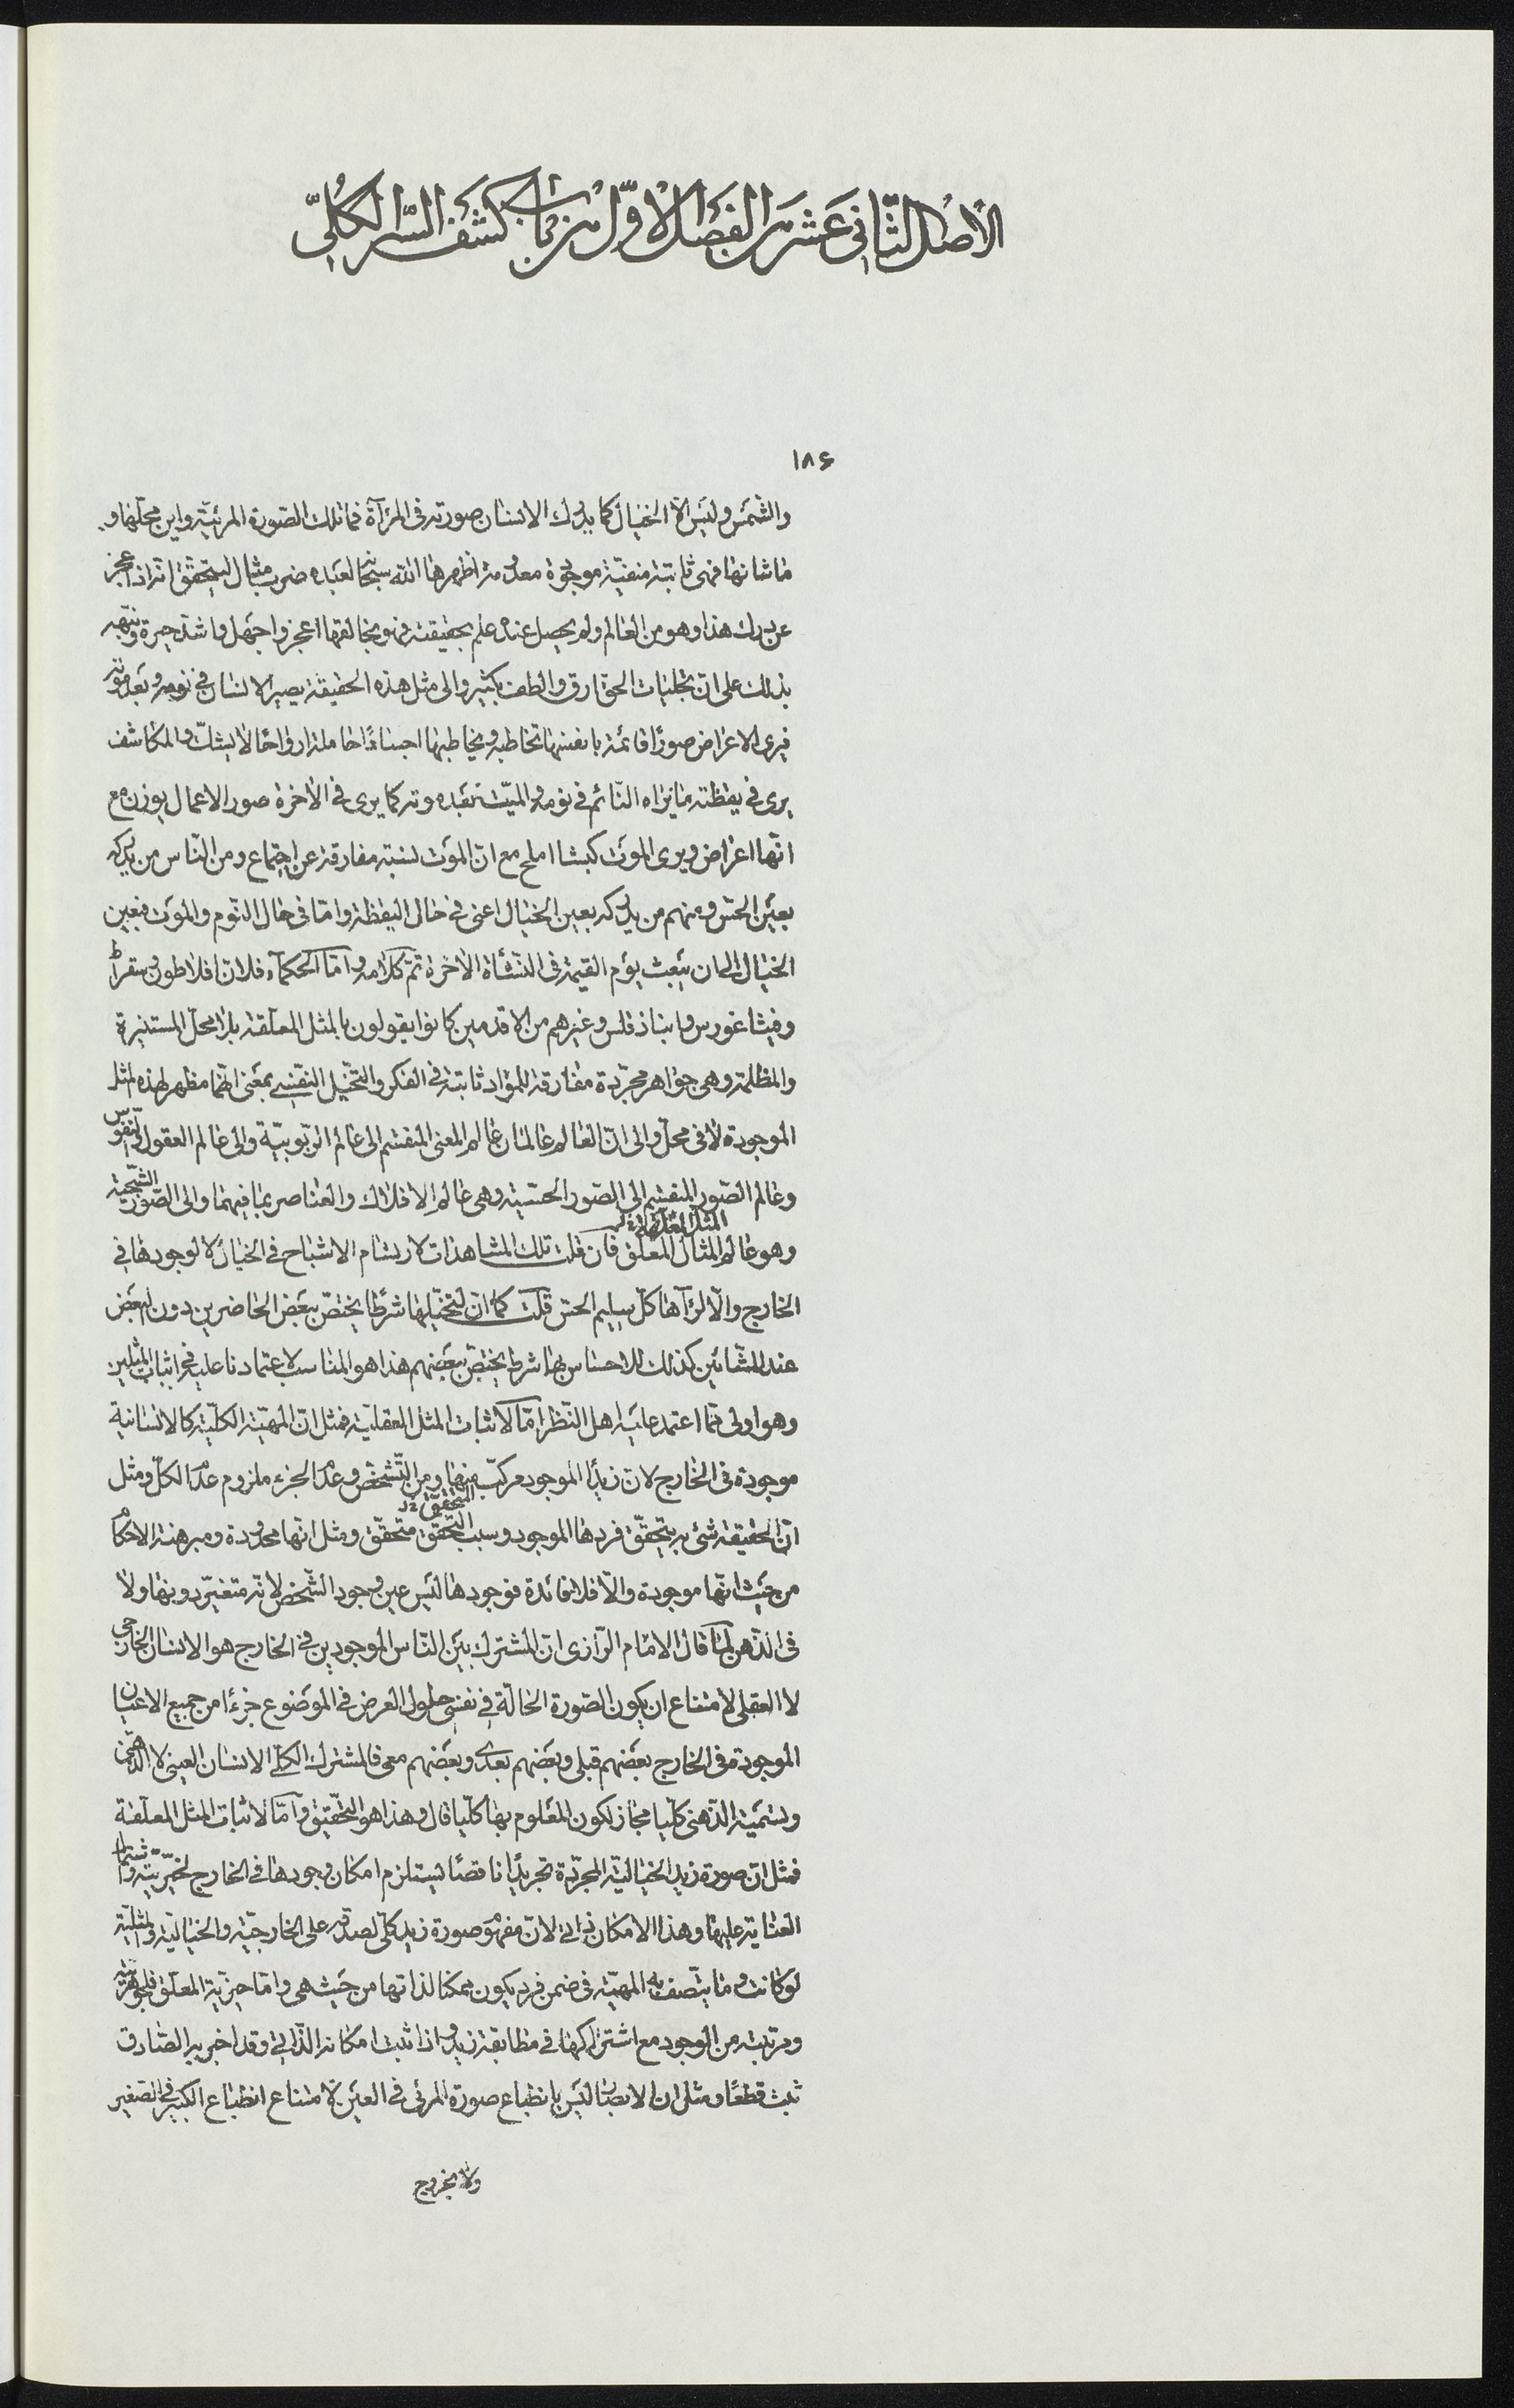 الاصل الثانی عشر من الفصل الاوّل من باب کشف السّر الکلّی
۱۸۶
والشمس ولیس الا الخیال کما یدرک الانسان صورته فی المرآة فما تلک الصّورة المرئیّة واین محلّها و
ما شانها فهی ثابتة منفیّة موجودة معدومة اظهرها الله سبحانه لعبده ضرب مثال لیتحقّق انه اذا عجز
عن درک هذا وهو من العالم ولم یحصل عنده علم بحقیقته فهو بخالقها اعجز واجهل واشدّ حیرة وتنبّه
بذلک علی انّ تجلیات الحق ارقّ والطف بکثیر والی مثل هذه الحقیقة یصیر الانسان فی نومه وبعد موته
فیری الاعراض صورًا قائمة بانفسها تخاطبه ویخاطبها اجسادًا حاملة ارواحًا لا یشکّ والمکاشف
یری فی یقظته ما یراه النّائم فی نومه والمیّت بعد موته کما یری فی الاخرة صور الاعمال یوزن مع
انّها اعراض ویری الموت کبشا املح مع انّ الموت نسبة مفارقة عن اجتماع ومن النّاس من یدرکه
بعین الحسّ ومنهم من یدرکه بعین الخیال اعنی فی حال الیقظة وامّا فی حال النّوم والموت فبعین
الخیال الی ان یبعث یوم القیمة فی النّشأة الاخرة تمّ کلامه وامّا الحکمآء فلانّ افلاطون وسقراط
وفیثاغورس وانباذقلس وغیرهم من الاقدمین کانوا یقولون بالمثل المعلّقة بلا محل المستنیرة
والمظلمة وهی جواهر مجرّدة مفارقة للمواد ثابتة فی الفکر والتخیّل النفسی بمعنی انّهما مظهر لهذه المثل
الموجودة لا فی محلّ والی انّ العالم عالمان عالم المعنی المنقسم الی عالم الرّبوبیّة والی عالم العقول والنّفوس
وعالم الصّور المنقسم الی الصّور الحسّیّة وهی عالم الافلاک والعناصر بما فیهما والی الصّور الشّبحیّة
المثل المعلّقة
وهو عالم المثال المعلّق فان قلت تلک المشاهدات لارتسام الاشباح فی الخیال لا لوجودها فی
الخارج والّا لرآها کلّ سلیم الحسّ قلت کما انّ لتخیّلها شرطا یختصّ ببعض الحاضرین دون البعض
عند المشّائین کذلک للاحساس بها شرط یختصّ ببعضهم هذا هو المناسب لاعتمادنا علیه فی اثبات المثلین
وهو اولی ممّا اعتمد علیه اهل النّظر امّا لاثبات المثل العقلیّة فمثل انّ المهیّة الکلّیّة کالانسانیة
موجودة فی الخارج لانّ زیدًا الموجود مرکّب منها ومن التّشخّص وعدم الجزء ملزوم عدم الکلّ ومثل
التحقّق
انّ الحقیقة شئ به یتحقّق فردها الموجود وسبب التحقّق متحقّق ومثل انّها محدودة ومبرهنة الاحکام
من حیث انّها موجودة والّا فلا فائدة فوجودها لیس عین وجود الشّخص لانّه متغیّر دونها ولا
فی الذّهن لما قال الامام الرّازی انّ المشترک بین النّاس الموجودین فی الخارج هو الانسان الخارجی
لا العقلی لامتناع ان یکون الصّورة الحالّة فی نفسی حلول العرض فی الموضوع جزءًا من جمیع الاعیان
الموجودة فی الخارج بعضهم قبلی وبعضهم بعدی وبعضهم معی فالمشترک الکلّی الانسان العینی لا الذّهنی
وتسمیة الذّهنی کلّیا مجاز لکون المعلوم بها کلّیا قال وهذا هو التحقیق وامّا لاثبات المثل المعلّقة
فمثل انّ صورة زید الخیالیّة المجرّدة تجریدًا ناقصًا یستلزم امکان وجودها فی الخارج
العنایة علیها وهذا الامکان ذاتی لانّ مفهوم صورة زید کلّی لصدقه علی الخارجیّة والخیالیّة والمثلیّة
لو کانت وما یتّصف به المهیّة فی ضمن فرد یکون ممکنا لذاتها من حیث هی وامّا المعلّق فلجوهریّته
ومرتبته من الوجود مع اشتراکها فی مطابقة زید واذا ثبت امکانه الذّاتی وقد اخبر به الصّادق
ثبت قطعًا ومثل انّ الابصار لیس بانطباع صورة المرئی فی العین لامتناع انطباع الکبیر فی الصّغیر
ولا بخروج